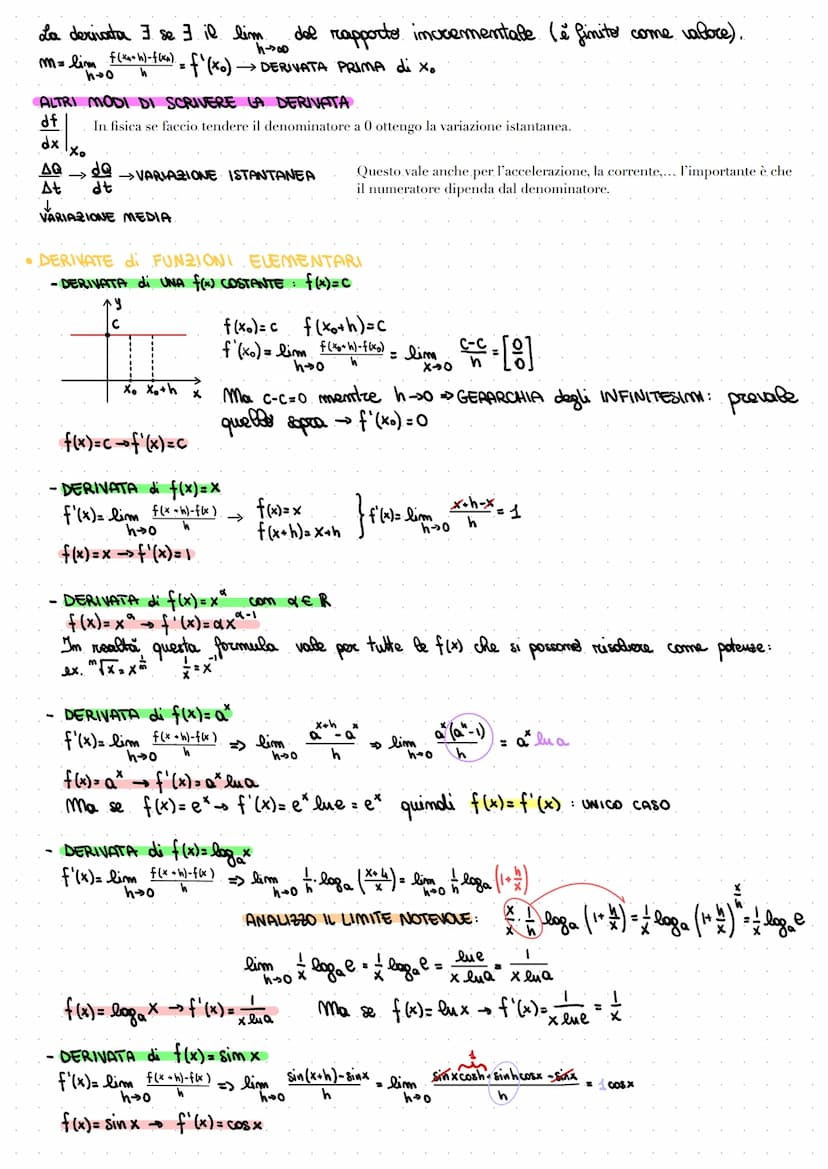 La derivata ∃ se ∃ il lim h→∞ del rapporto incrementale (è finito come valore).
m = lim h→0 f(x₀+h)-f(x₀)/h = f'(x₀) → DERIVATA PRIMA di x₀
ALTRI MODI DI SCRIVERE LA DERIVATA
df/dx |x₀ In fisica se faccio tendere il denominatore a 0 ottengo la variazione istantanea.
ΔQ/Δt → dQ/dt → VARIAZIONE ISTANTANEA
Questo vale anche per l'accelerazione, la corrente,… l'importante è che
il numeratore dipenda dal denominatore.
↓
VARIAZIONE MEDIA
• DERIVATE di FUNZIONI ELEMENTARI
- DERIVATA di UNA f(x) COSTANTE : f(x)=c
y
c
x₀ x₀+h x
f(x₀)=c f(x₀+h)=c
f'(x₀) = lim h→0 f(x₀+h)-f(x₀)/h = lim x→0 c-c/h = [0/0]
Ma c-c=0 mentre h→0 ⇒ GERARCHIA degli INFINITESIMI: prevale
quello sopra → f'(x₀)=0
f(x)=c → f'(x)=c
- DERIVATA di f(x)=x
f'(x)= lim h→0 f(x+h)-f(x)/h → f(x)=x
f(x+h)=x+h } f'(x)= lim h→0 x+h-x/h = 1
f(x)=x → f'(x)=1
- DERIVATA di f(x)=x^α con α∈R
f(x)=x^α → f'(x)=αx^α-1
In realtà questa formula vale per tutte le f(x) che si possono risolvere come potenze:
ex. ᵐ√x = x^1/m 1/x = x^-1
- DERIVATA di f(x)=a^x
f'(x)= lim h→0 f(x+h)-f(x)/h ⇒ lim h→0 a^x+h - a^x/h ⇒ lim h→0 a^x(a^h-1)/h = a^x ln a
f(x)=a^x → f'(x)=a^x ln a
Ma se f(x)=e^x → f'(x)=e^x ln e = e^x quindi f(x)=f'(x) : UNICO CASO
- DERIVATA di f(x)=logₐx
f'(x)= lim h→0 f(x+h)-f(x)/h ⇒ lim h→0 1/h · logₐ(x+h/x) = lim h→0 1/h logₐ(1+h/x)
ANALIZZO IL LIMITE NOTEVOLE: x/x · 1/h logₐ(1+h/x) = 1/x logₐ(1+h/x)^x/h = 1/x logₐe
lim h→0 1/x logₐe = 1/x logₐe = ln e/x ln a = 1/x ln a
f(x)=logₐx → f'(x)= 1/x ln a Ma se f(x)= ln x → f'(x)= 1/x ln e = 1/x
- DERIVATA di f(x)=sin x
1
f'(x)= lim h→0 f(x+h)-f(x)/h ⇒ lim h→0 sin(x+h)-sinx/h = lim h→0 sinxcosh+sinhcosx-sinx/h = 1 cosx
f(x)= sin x → f'(x)=cos x